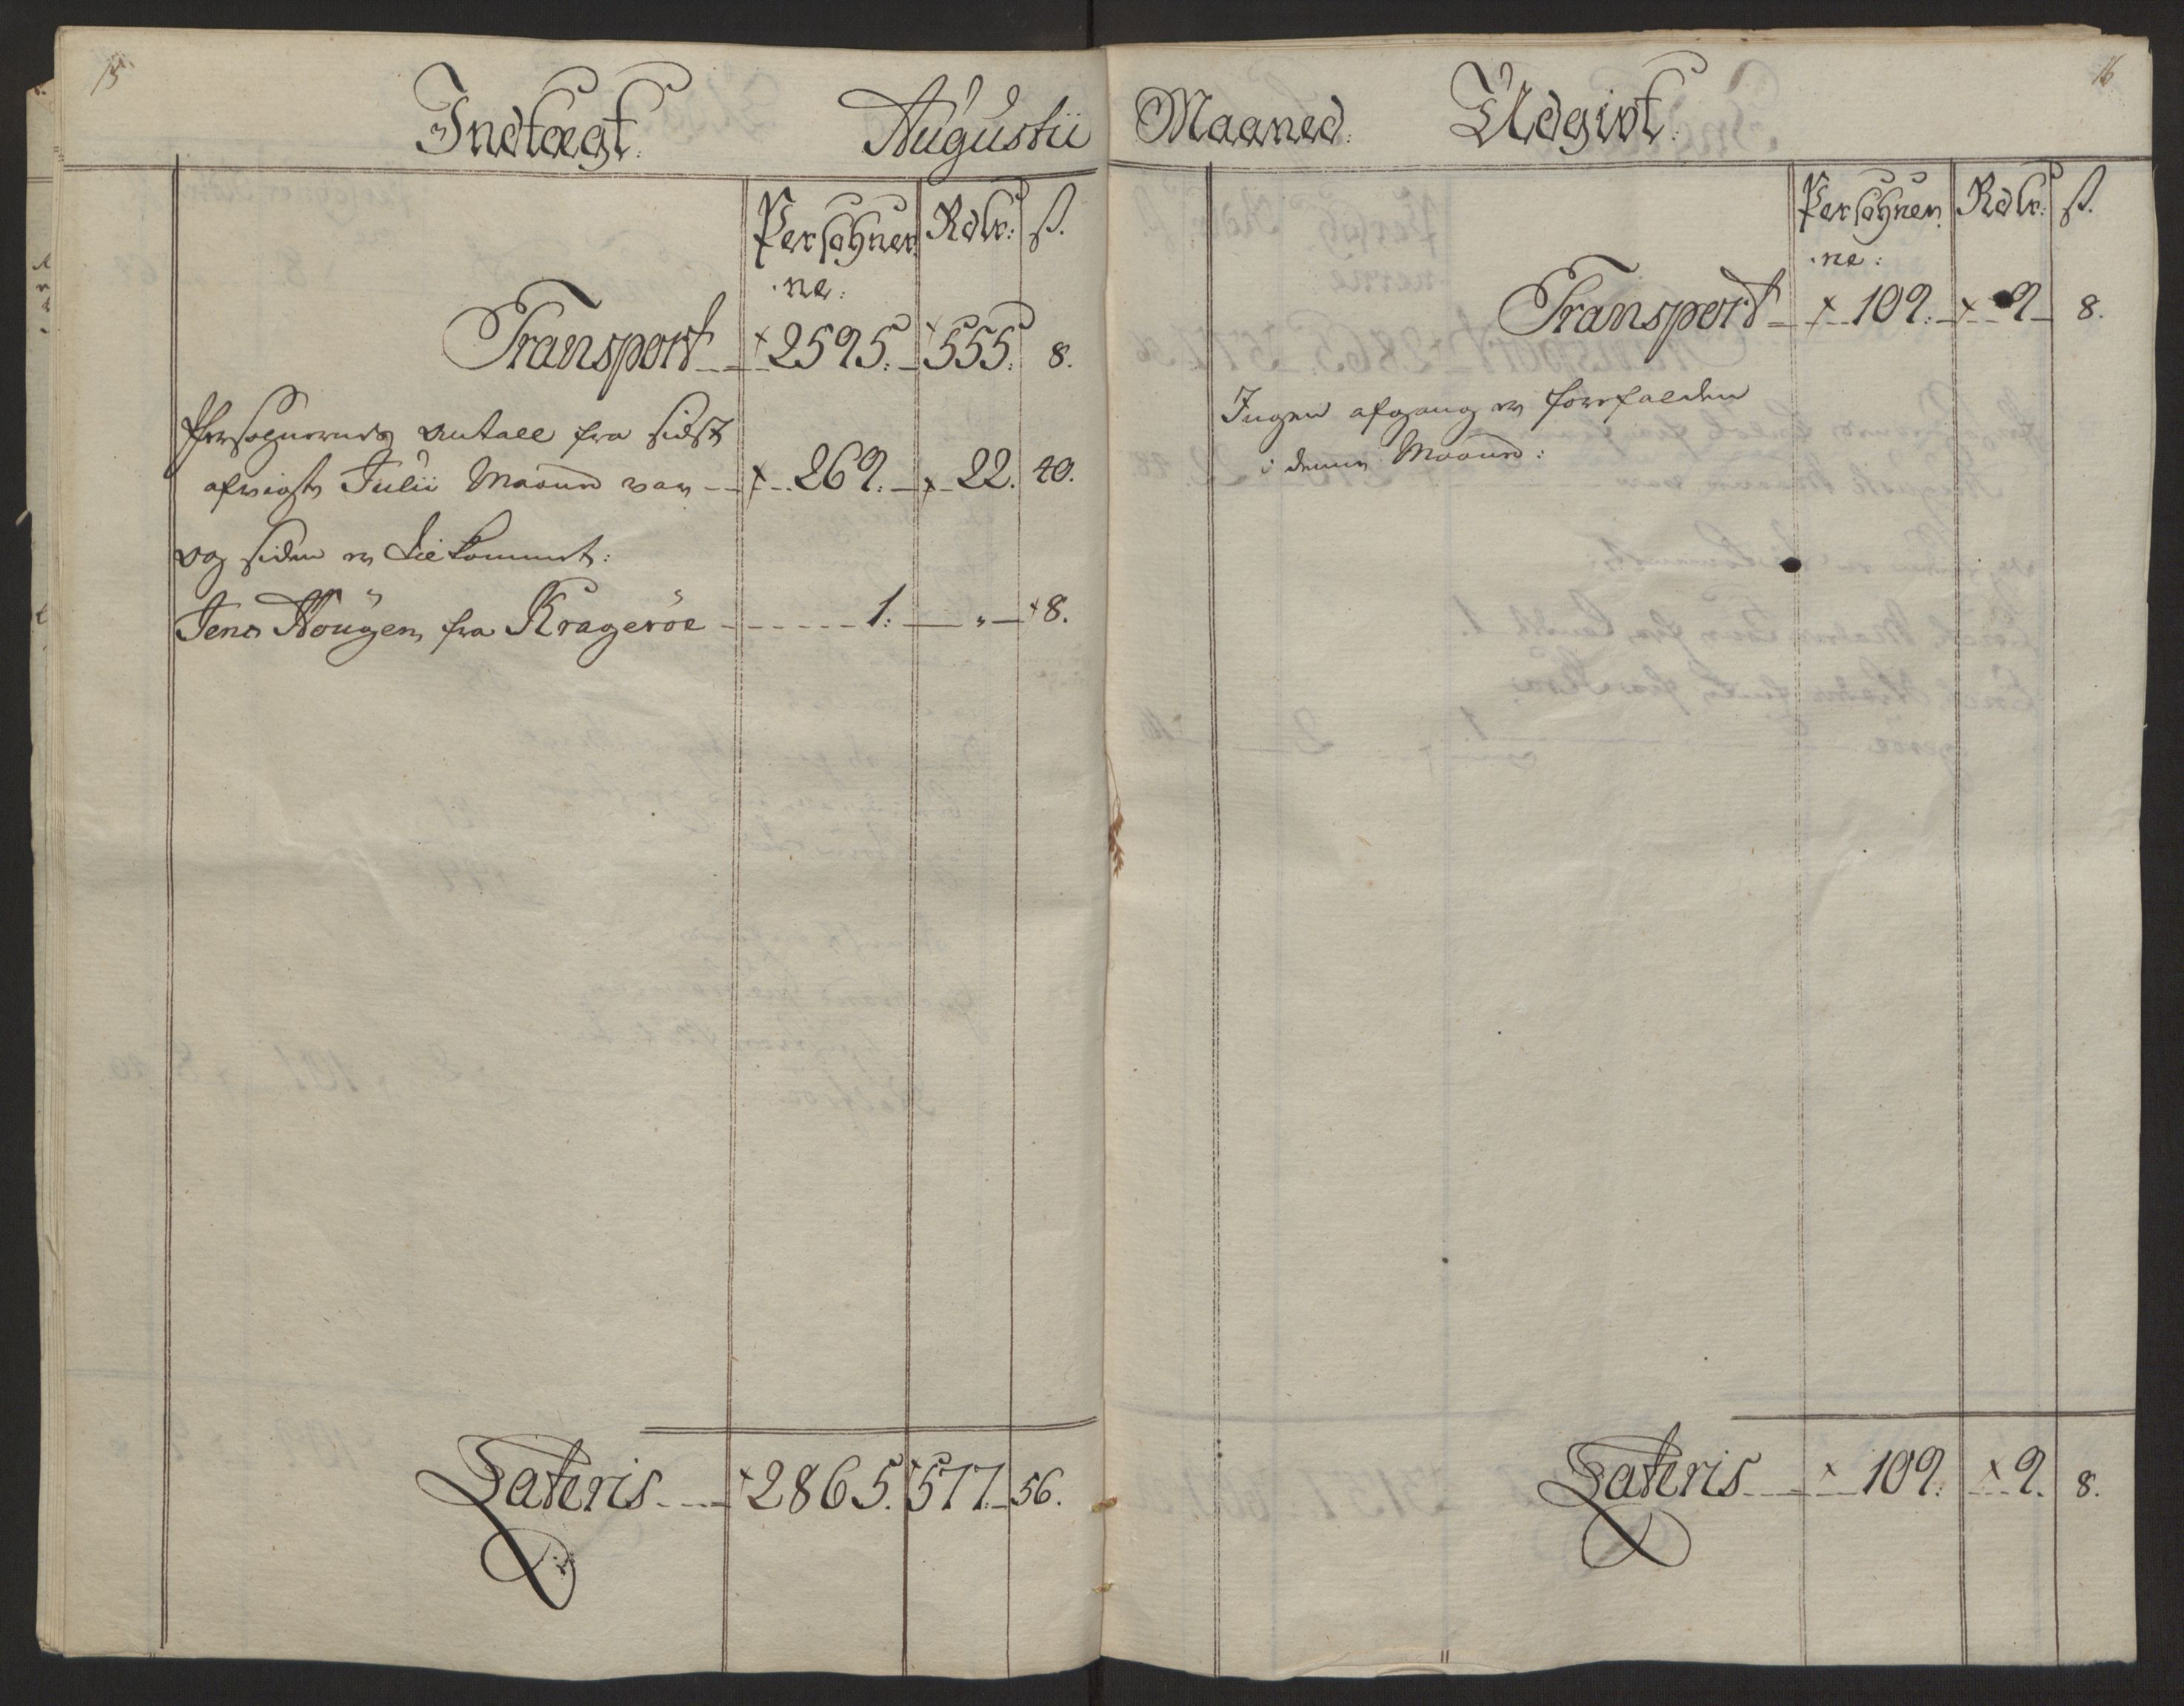 15.
Indtægt. Augustii
Persohner Rdlr: ß.
ne:
Transport × 2595. × 555. 8.
Persognernes Antall fra sidst
afvigte Julii Maaned var × 269. × 22. 40.
og siden er tilkommet:
Jens Hougen fra Krageröe 1. " × 8.
Lateris × 2865. × 577. 56.
16
Maaned. Udgivt.
Persohner Rdlr: ß.
ne:
Transport × 109. × 9 8.
Ingen afgang er forefalden
i denne Maaned:
Lateris × 109. × 9. 8.